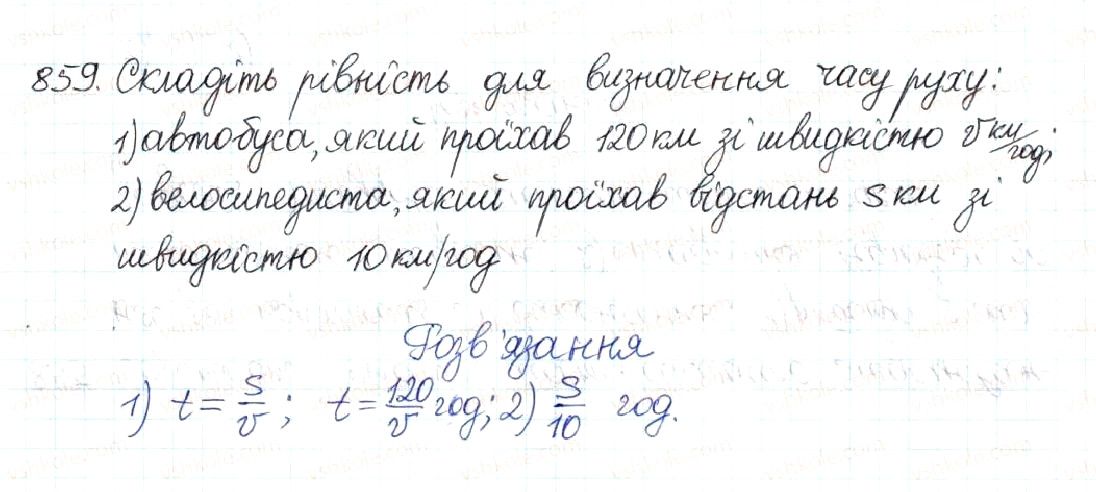 859. Складіть рівність для визначення часу руху:
1) автобуса, який проїхав 120 км зі швидкістю v км/год;
2) велосипедиста, який проїхав відстань s км зі
швидкістю 10 км/год
Розв'язання
1) t = s/v ; t = 120/v год; 2) s/10 год.